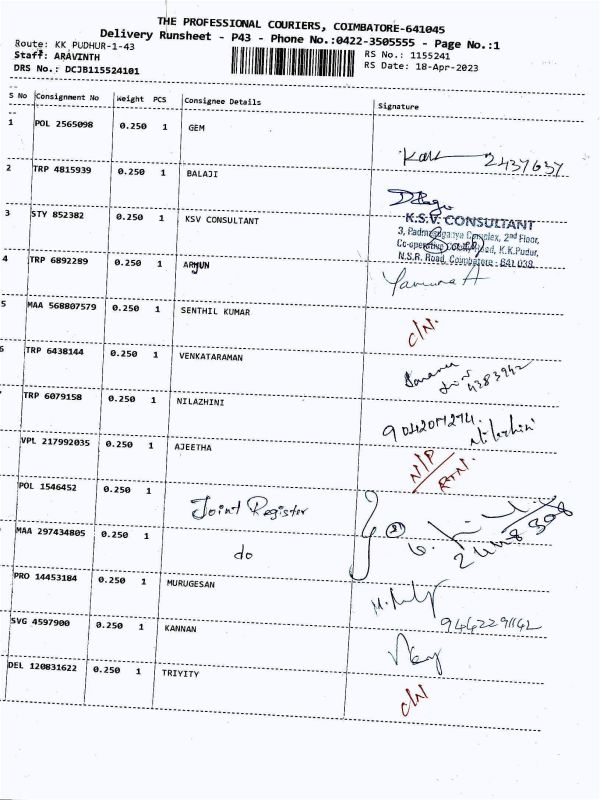 THE PROFESSIONAL COURIERS, COIMBATORE-641045
Delivery Runsheet - P43 - Phone No.:0422-3505555 - Page No.:1
Route: KK PUDHUR-1-43
RS No.: 1155241
Staff: ARAVINTH
RS Date: 18-Apr-2023
DRS No.: DCJB115524101
S No Consignment No Weight PCS Consignee Details Signature
1 POL 2565098 0.250 1 GEM
2437637
2 TRP 4815939 0.250 1 BALAJI
3 STY 852382 0.250 1 KSV CONSULTANT
K.S.V. CONSULTANT
3, Complex, 2nd Floor,
Co-operative Road, K.K.Pudur,
N.S.R. Road, Coimbatore - 641 038.
4 TRP 6892289 0.250 1 ARJUN
Yamuna A
5 MAA 568807579 0.250 1 SENTHIL KUMAR
C/N.
6 TRP 6438144 0.250 1 VENKATARAMAN
TRP 6079158 0.250 1 NILAZHINI
9042071274.
Nilazhini
VPL 217992035 0.250 1 AJEETHA
N/P
RTN.
POL 1546452 0.250 1 Joint Register
MAA 297434805 0.250 1 do
PRO 14453184 0.250 1 MURUGESAN
SVG 4597900 0.250 1 KANNAN
DEL 120831622 0.250 1 TRIYITY
C/N